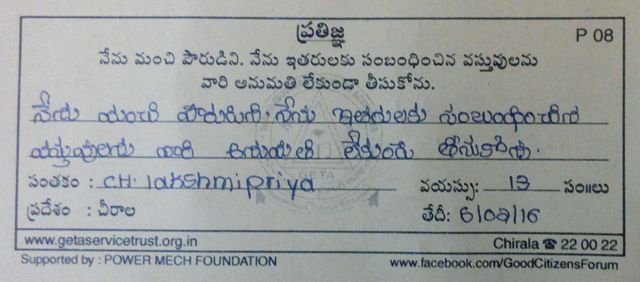 ప్రతిజ్ఞ
P 08
నేను మంచి పౌరుడిని. నేను ఇతరులకు సంబంధించిన వస్తువులను
వారి అనుమతి లేకుండా తీసుకోను.
నేను మంచి పౌరుడిని. నేను ఇతరులకు సంబంధించిన
వస్తువులను వారి అనుమతి లేకుండా తీసుకోను.
సంతకం : CH. lakshmipriya వయస్సు: 13 సం॥లు
ప్రదేశం : చీరాల తేదీ: 6/09/16
www.getaservicetrust.org.in Chirala ☎ 22 00 22
Supported by : POWER MECH FOUNDATION www.facebook.com/GoodCitizensForum